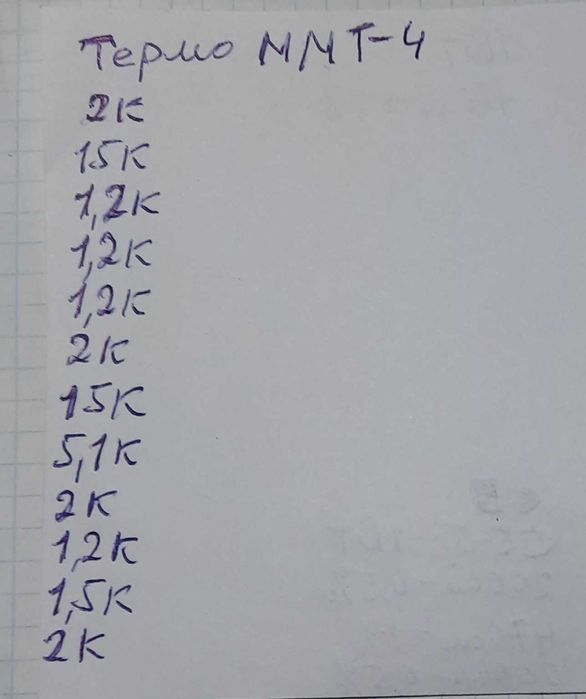 Термо ММТ-4
2К
15К
1,2К
1,2К
1,2К
2К
15К
5,1К
2К
1,2К
1,5К
2К